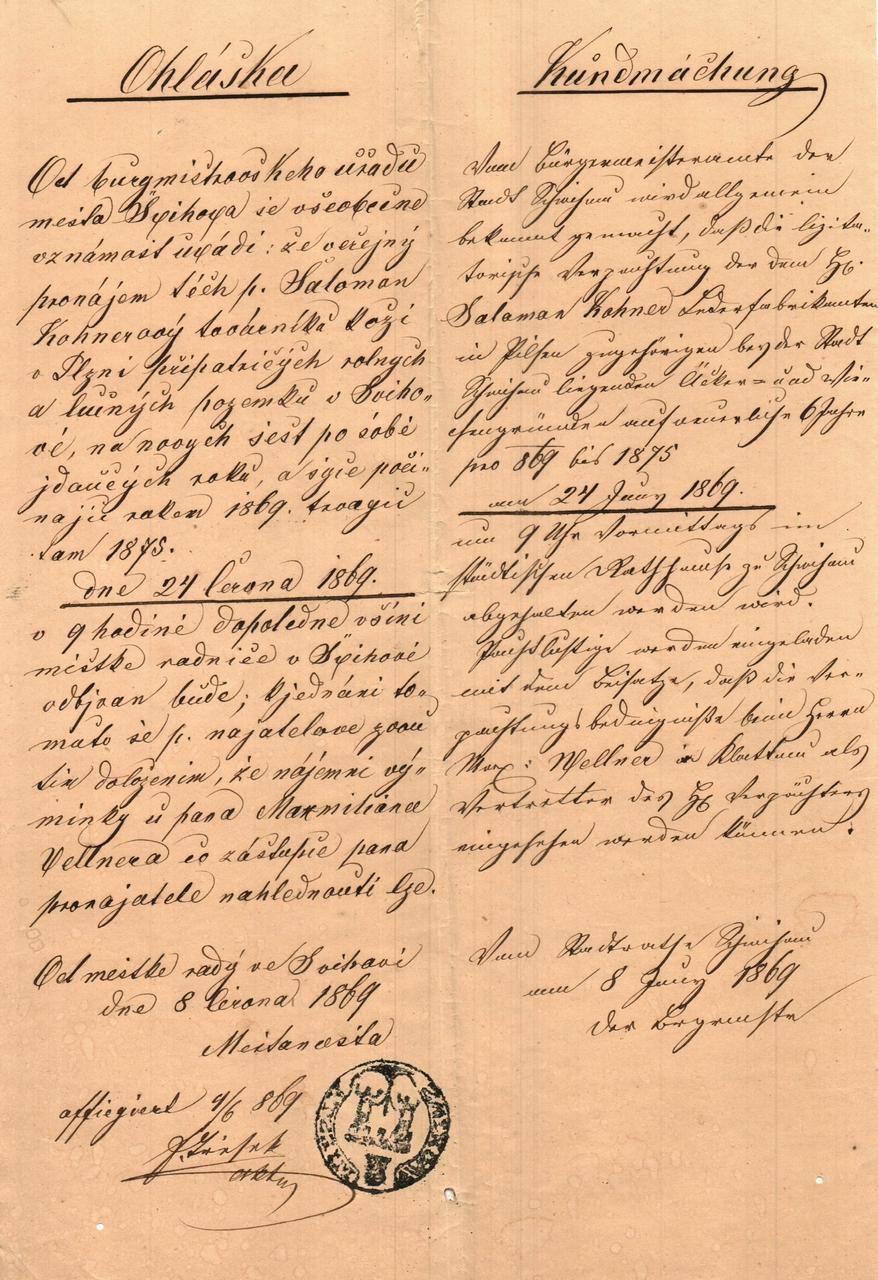 Ohláška
Od burgmistrovskeho úřadu
města Švihova se všeobecne
v známost uvádí: že veřejný
pronájem těch p. Saloman
Kohnerový továrníku koží
v Plzni připatřičých rolnych
a lučných pozemku v Sviho-
vě, na novych šest po sobě
jdaučých roku, a syce poči-
najíc rokem 1869. trvagic
tam 1875.
dne 24 června 1869.
v 9 hodině dopoledne v síni
městke radnice v Švihově
odbjvan bude; k jednáni to-
muto se p. najatelove zvou
tim doloženim, že nájemni vý-
minky u pana Maxmiliána
Vellnera co zástupce pana
pronajatele nahlednouti lze.
Od městke rady ve Svihově
dne 8 června 1869
Městanosta
affiegiert 9/6 869
Kundmachung
Vom Bürgermeisteramte der
Stadt Schwihau wird allgemein
bekannt gemacht, daß die lizita-
torische Verpachtung der dem H.
Saloman Kohner Lederfabrikanten
in Pilsen zugehörigen bey der Stadt
Schwihau liegenden Äcker= und Wie-
sengründen auf neuerliche 6 Jahre
pro 869 bis 1875
am 24 Juny 1869.
um 9 Uhr Vormittags im
städtischen Rathhause zu Schwihau
abgehalten werden wird.
Pachtlustige werden eingeladen
mit dem Beisatze, daß die Ver-
pachtungsbedingniße beim Herrn
Max: Wellner in Klattau als
Vertretter des H Verpächters
eingesehen werden können.
Vom Stadtrathe Schwihau
am 8 Juny 1869
Der Bürgermste